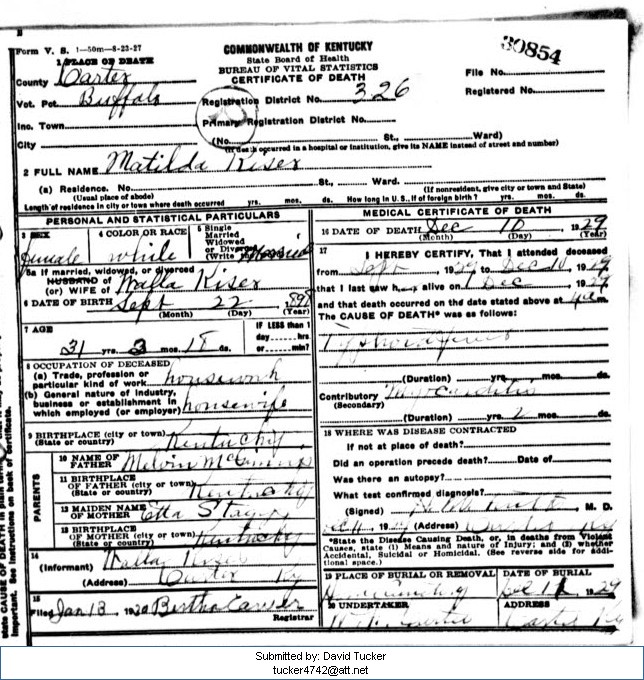 Form V. S. 1—50m—8-23-27
COMMONWEALTH OF KENTUCKY
30854
1 PLACE OF DEATH
State Board of Health
BUREAU OF VITAL STATISTICS
CERTIFICATE OF DEATH
County Carter
File No.
Vot. Pct. Buffalo
Registration District No. 326
Registered No.
Inc. Town
Primary Registration District No.
City
(No. St., Ward)
(If death occurred in a hospital or institution, give its NAME instead of street and number)
2 FULL NAME Matilda Kiser
(a) Residence. No. St., Ward.
(Usual place of abode)
(If nonresident, give city or town and State)
Length of residence in city or town where death occurred yrs. mos. ds. How long in U. S., if of foreign birth? yrs. mos. ds.
PERSONAL AND STATISTICAL PARTICULARS
3 SEX
female
4 COLOR OR RACE
white
5 Single
Married
Widowed
or Divorced
(Write the word) Married
5a If married, widowed, or divorced
HUSBAND of
(or) WIFE of Kiser
6 DATE OF BIRTH Sept 22
(Month) (Day) (Year)
7 AGE
31 yrs. 3 mos. 18 ds.
IF LESS than 1
day hrs
or min?
8 OCCUPATION OF DECEASED
(a) Trade, profession or
particular kind of work housework
(b) General nature of industry,
business or establishment in
which employed (or employer) housewife
9 BIRTHPLACE (city or town)
(State or country) Kentucky
PARENTS
10 NAME OF
FATHER Melvin
11 BIRTHPLACE
OF FATHER (city or town)
(State or country) Kentucky
12 MAIDEN NAME
OF MOTHER Etta
13 BIRTHPLACE
OF MOTHER (city or town)
(State or country) Kentucky
14
(Informant) Kiser
(Address) Carter Ky
15
Filed Jan 13 1930
Registrar
MEDICAL CERTIFICATE OF DEATH
16 DATE OF DEATH Dec 10 1929
(Month) (Day) (Year)
17
I HEREBY CERTIFY, That I attended deceased
from Sept 1929 to Dec 10 1929
that I last saw h alive on Dec 1929
and that death occurred on the date stated above at
The CAUSE OF DEATH* was as follows:
(Duration) yrs. mos. ds.
Contributory
(Secondary)
(Duration) yrs. 2 mos. ds.
18 WHERE WAS DISEASE CONTRACTED
If not at place of death?
Did an operation precede death? Date of
Was there an autopsy?
What test confirmed diagnosis?
(Signed) M. D.
(Address)
*State the Disease Causing Death, or, in deaths from Violent
Causes, state (1) Means and nature of Injury; and (2) whether
Accidental, Suicidal or Homicidal. (See reverse side for addi-
tional space.)
19 PLACE OF BURIAL OR REMOVAL
DATE OF BURIAL
1929
20 UNDERTAKER
ADDRESS
Carter Ky
state CAUSE OF DEATH in
Important. See instructions on back of certificate.
Submitted by: David Tucker
tucker4742@att.net